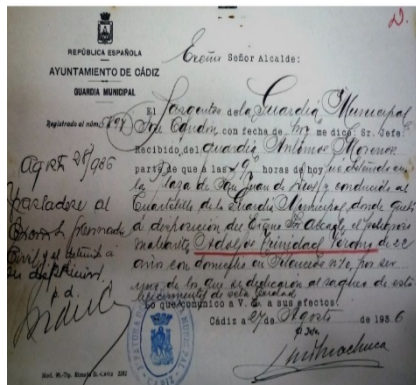 REPÚBLICA ESPAÑOLA
AYUNTAMIENTO DE CÁDIZ
GUARDIA MUNICIPAL
Registrado al núm.
Excmo Señor Alcalde:
El Sargento de la Guardia Municipal
con fecha de hoy me dice: Sr. Jefe:
Recibido del guardia Antonio Moreno
parte de que a las 19 horas de hoy fué detenido en
la Plaza de San Juan de Dios y conducido al
Cuartelillo de la Guardia Municipal, donde queda
a disposición del Excmo Sr. Alcalde, el peligroso
maleante Adolfo Trinidad de 22
años con domicilio en por ser
uno de los que se dedicaron al saqueo de esta
de esta
Lo que comunico a V. E. a sus efectos.
Cádiz a 27 de Agosto de 1936
El Jefe,
Agto 28/936
Trasladese al
Excmo Sr. Gobernador
Civil y el detenido a
su disposición
P. d.
GUARDIA MUNICIPAL